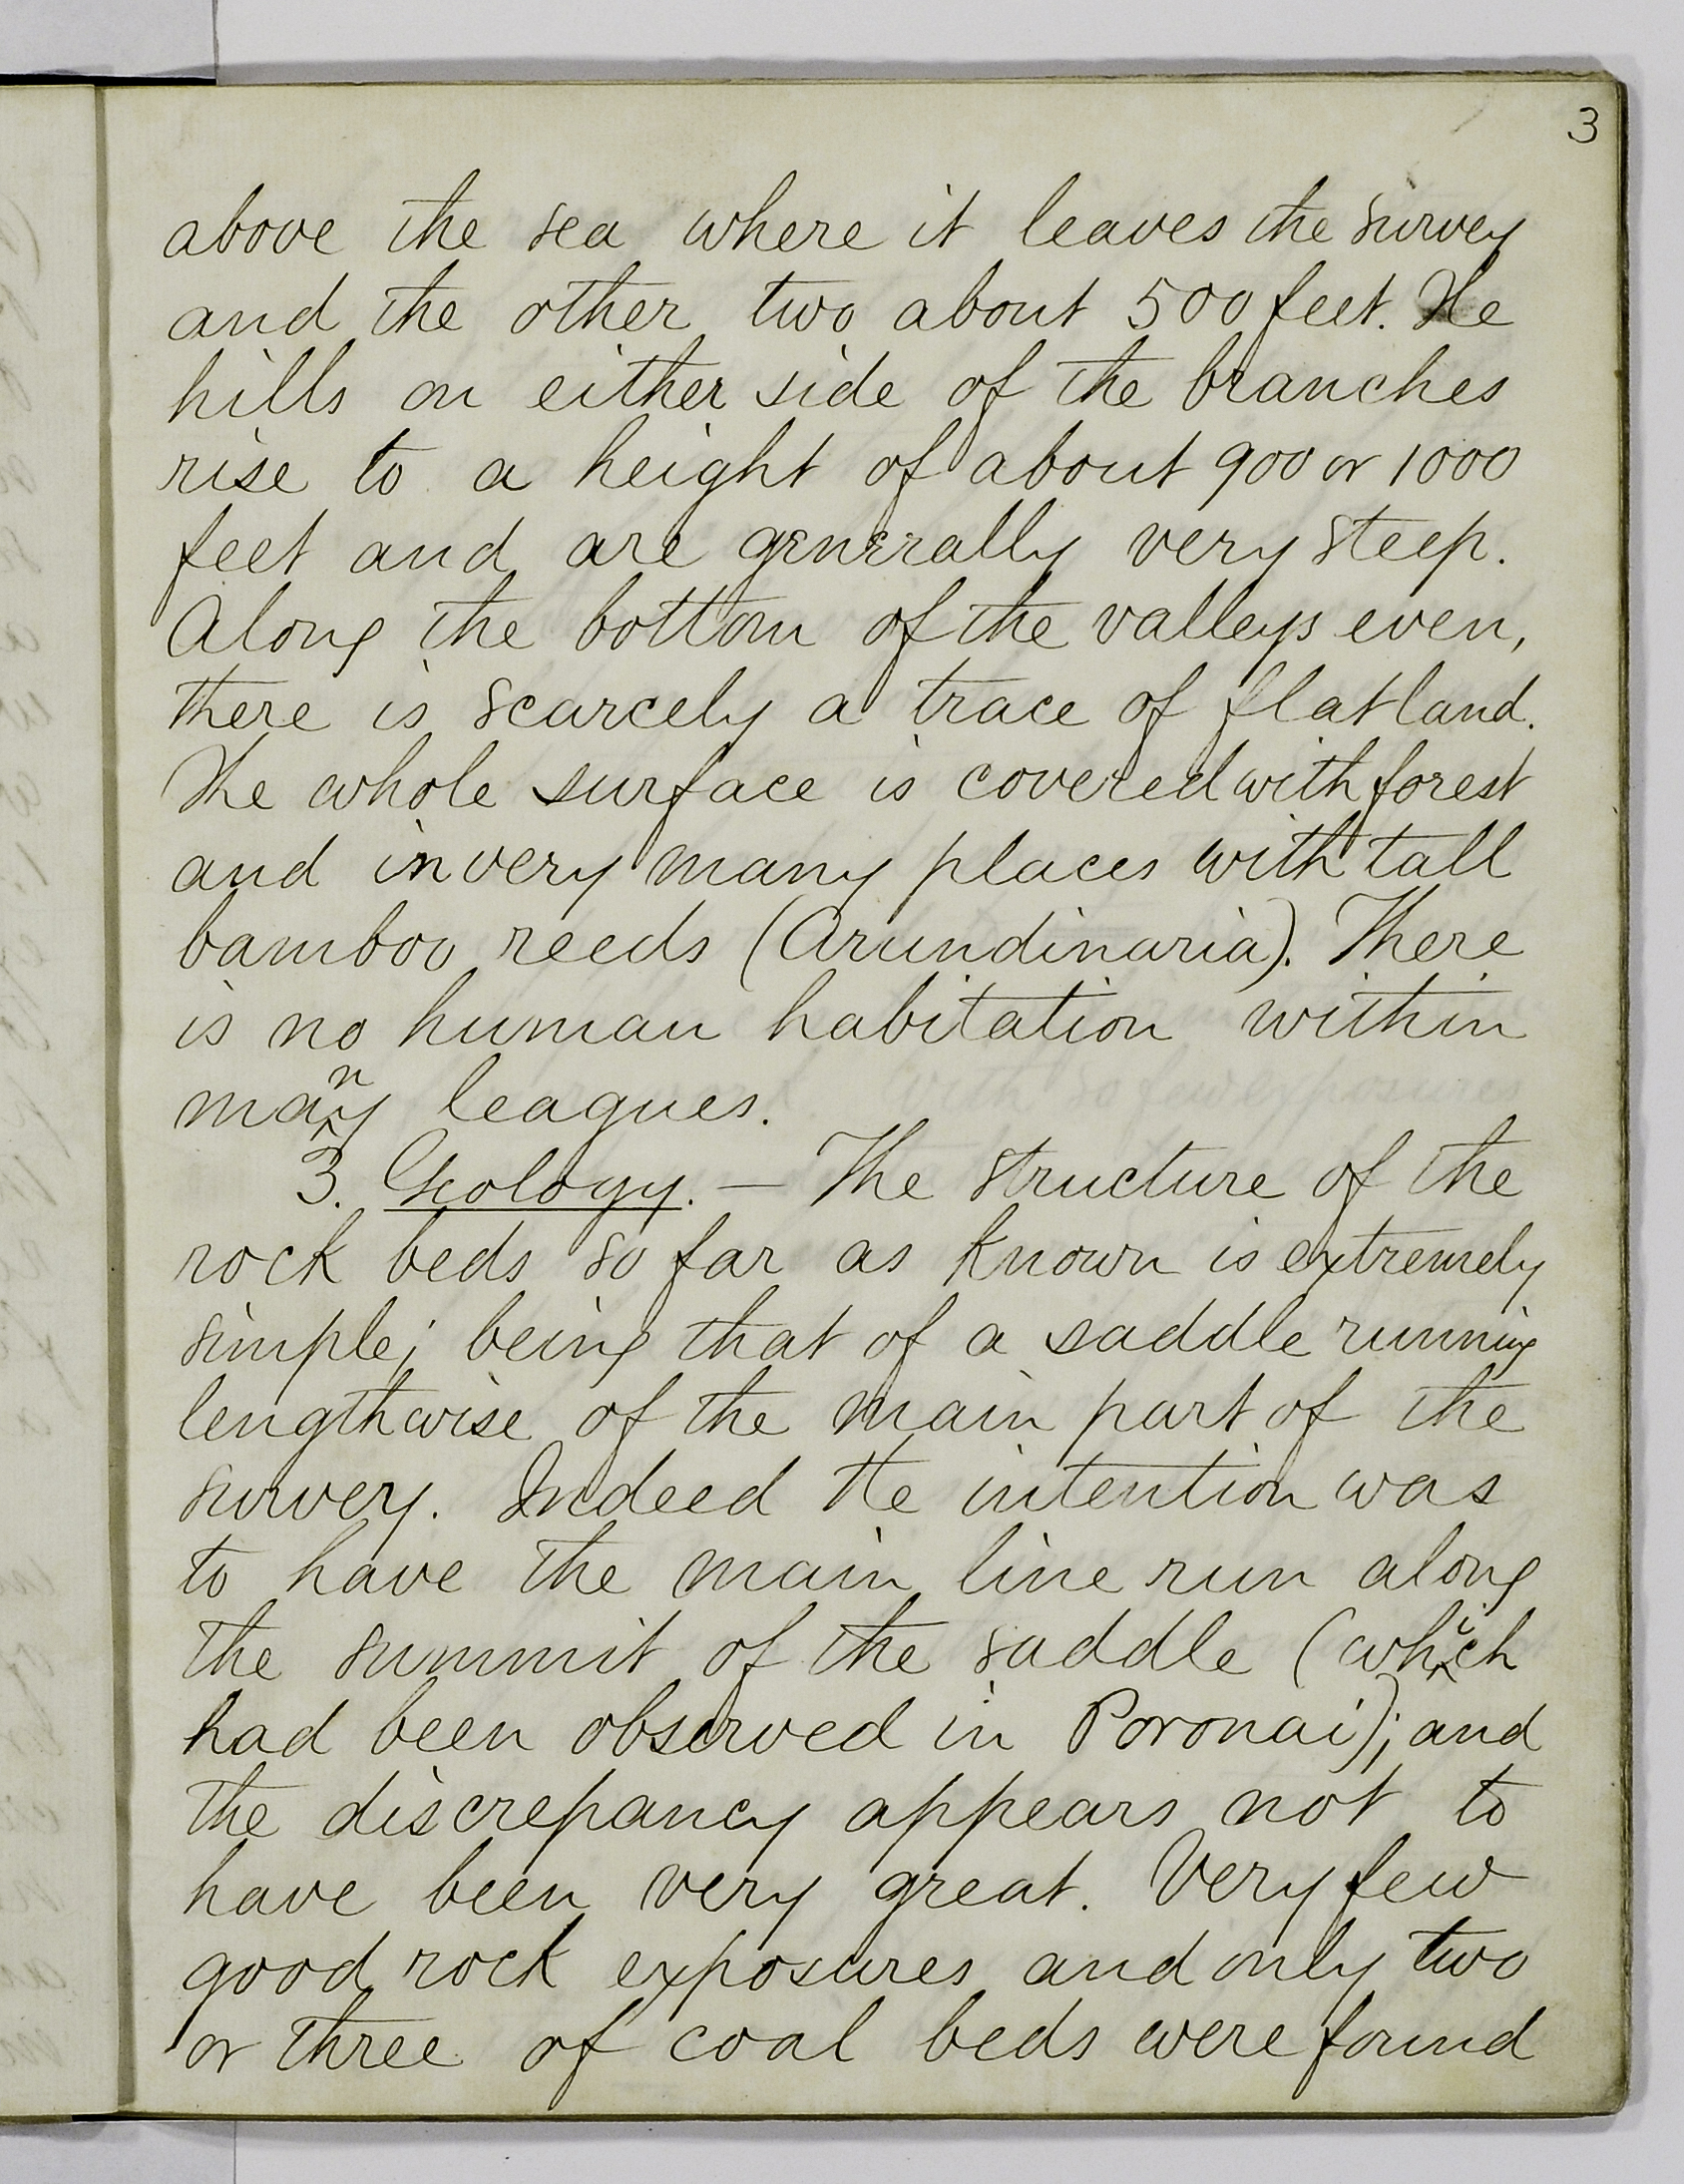 3
above the sea where it leaves the survey
and the other two about 500 feet. The
hills on either side of the branches
rise to a height of about 900 or 1000
feet and are generally very steep.
Along the bottom of the valleys even,
there is scarcely a trace of flat land.
The whole surface is covered with forest
and in very many places with tall
bamboo reeds (Arundinaria). There
is no human habitation within
many leagues.
3. Geology. — The structure of the
rock beds so far as known is extremely
simple; being that of a saddle running
lengthwise of the main part of the
survey. Indeed the intention was
to have the main line run along
the summit of the saddle (which
had been observed in Poronai); and
the discrepancy appears not to
have been very great. Very few
good rock exposures and only two
or three of coal beds were found